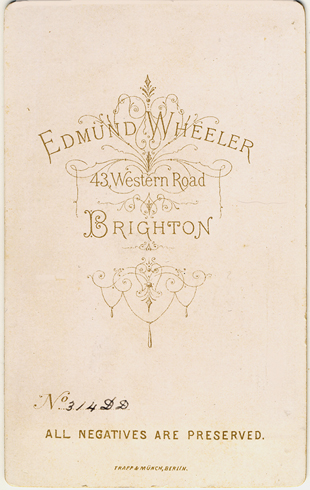 EDMUND WHEELER
43, Western Road
BRIGHTON
No. 314 DD
ALL NEGATIVES ARE PRESERVED.
TRAPP & MÜNCH, BERLIN.